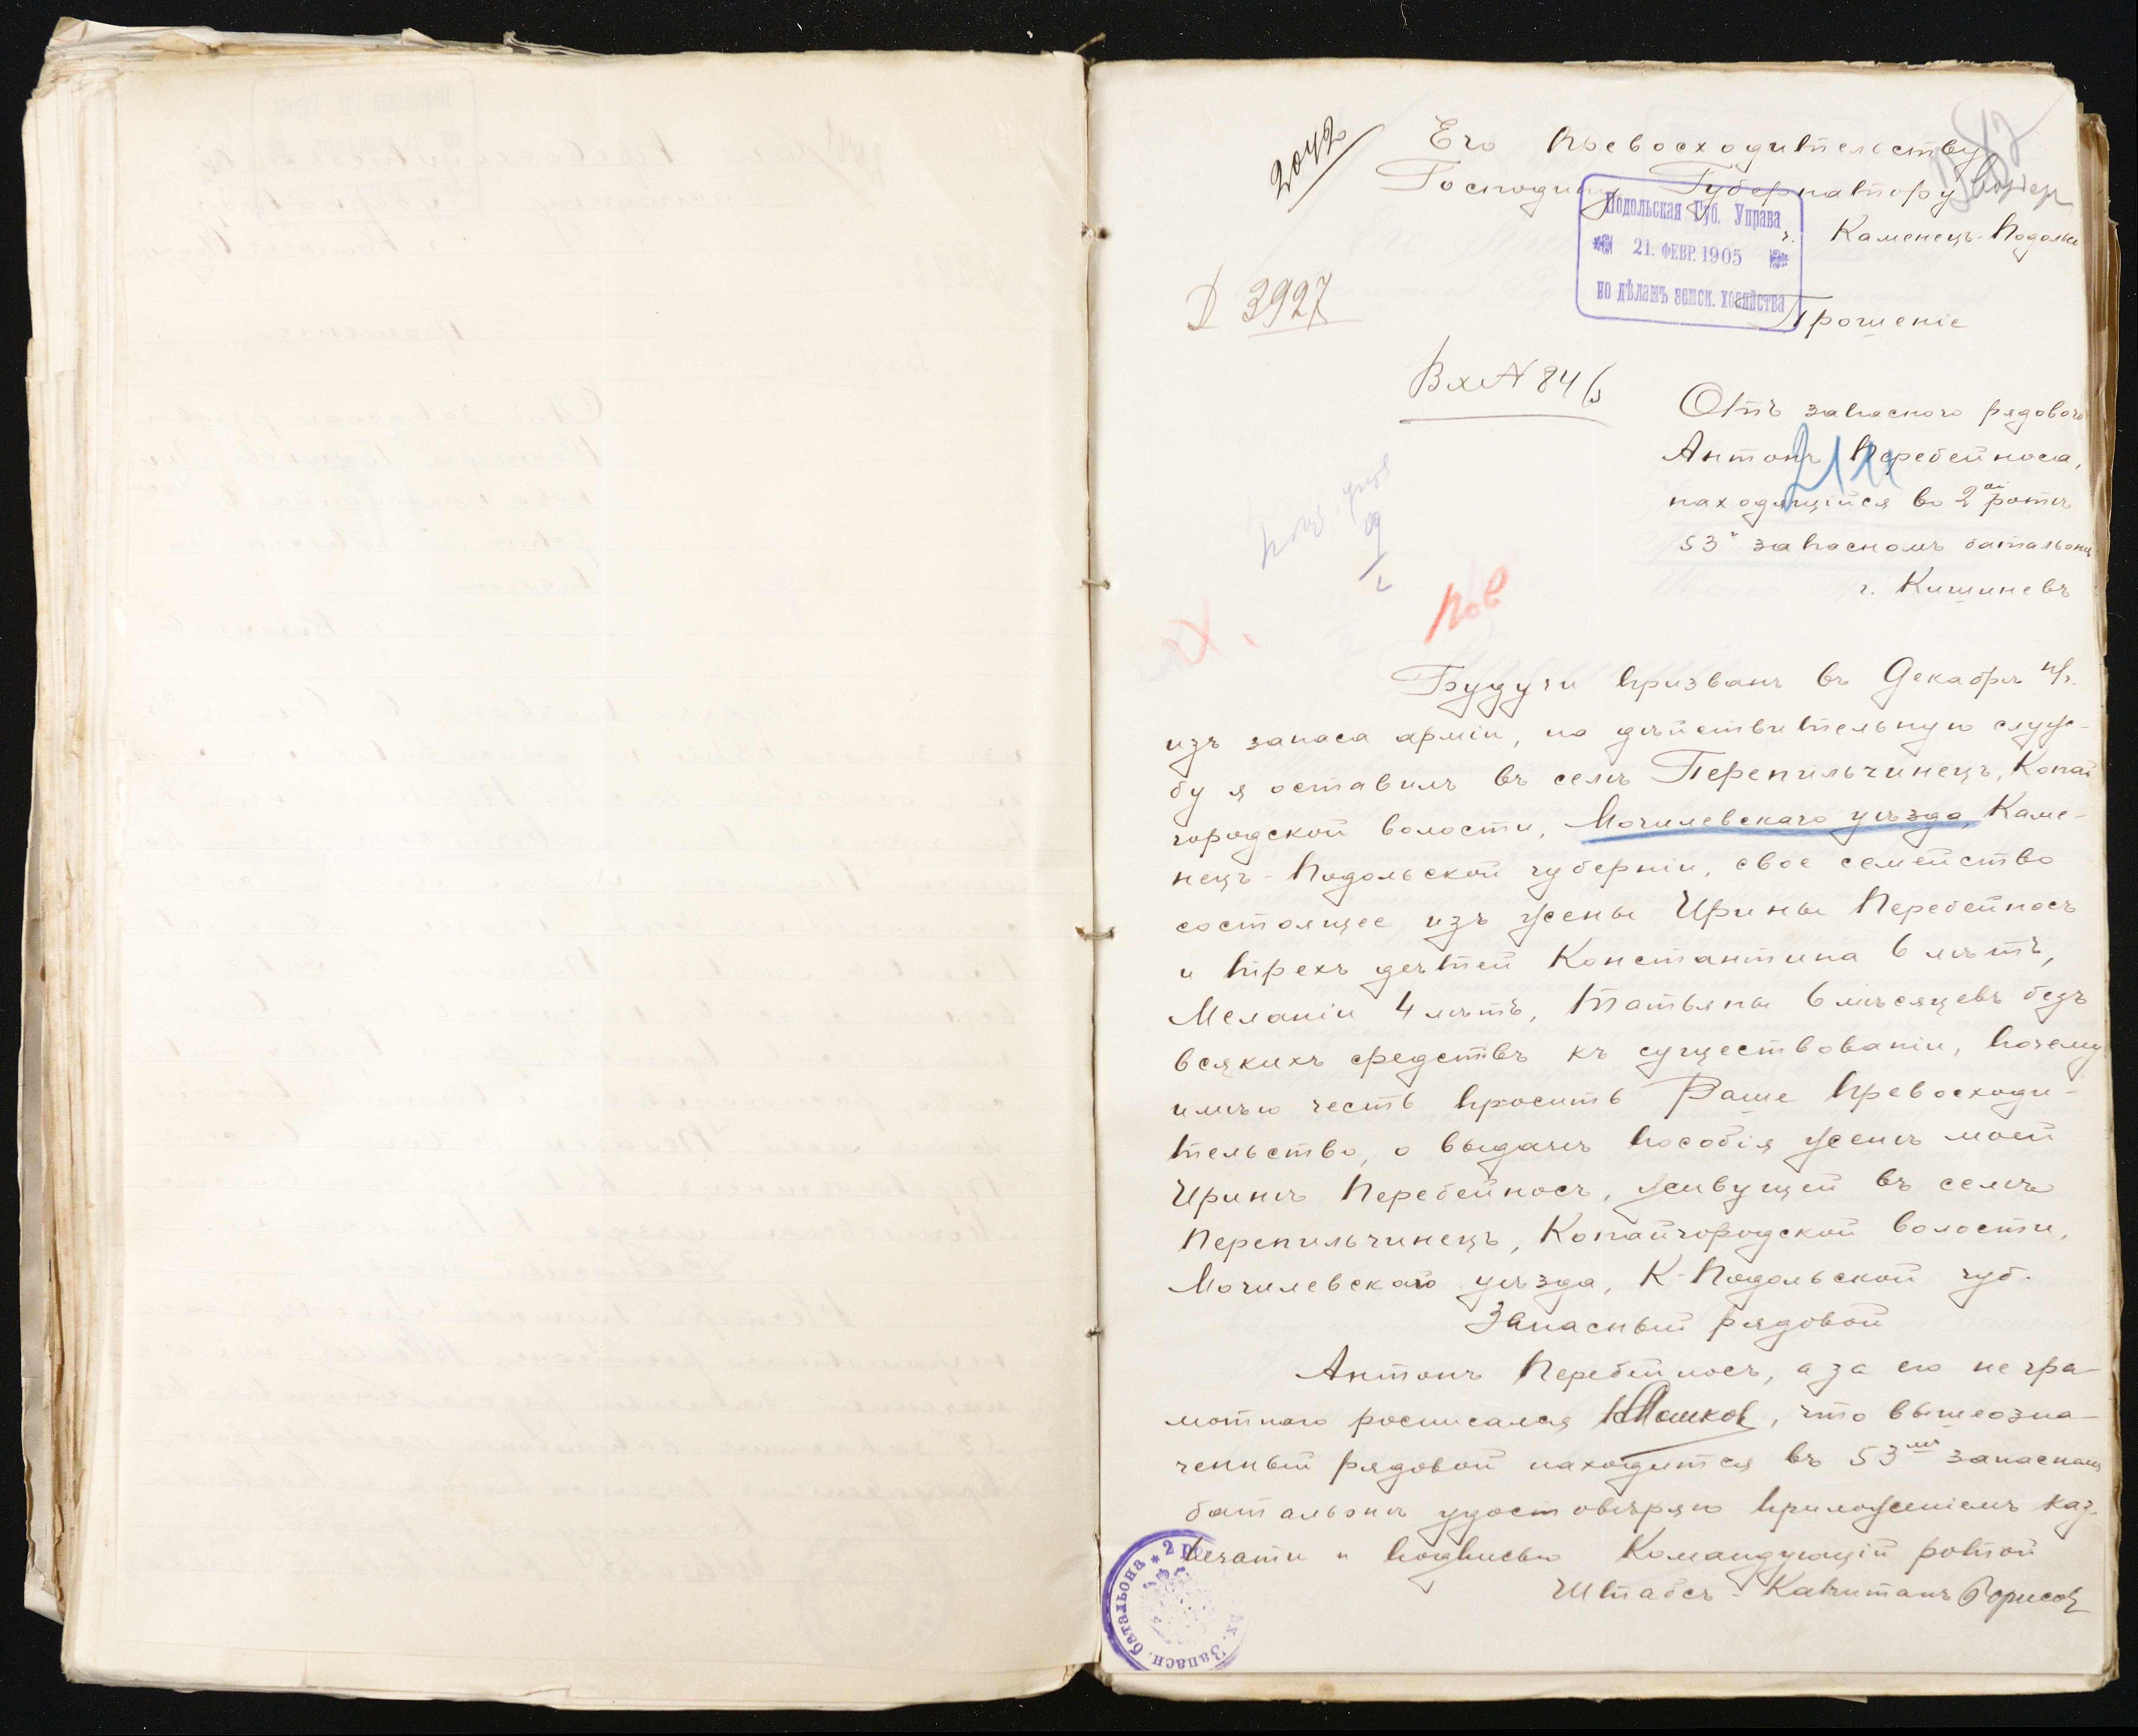 2042
Его Превосходительству
Господину Губернатору
Подольская Губ. Управа
21. ФЕВР. 1905
по дѣламъ земск. хозяйства
г. Каменецъ-Подольс
3927
Прошеніе
Вх № 846
Отъ запасного рядового
Антонъ Перебейноса,
находящійся во 2ой ротѣ
53г запасномъ батальонѣ
г. Кишиневъ
Будучи призванъ въ Декабрѣ
изъ запаса арміи, на дѣйствительную служ-
бу я оставилъ въ селѣ Перепильчинецъ, Копай
городской волости, Могилевскаго уѣзда, Каме-
нецъ-Подольской губерніи, свое семейство
состоящее изъ жены Ирины Перебейносъ
и трехъ дѣтей Константина 6 лѣтъ,
Меланіи 4 лѣтъ, Татьяны 6 мѣсяцевъ безъ
всякихъ средствъ къ существованіи, почему
имѣю честь просить Ваше Превосходи-
тельство, о выдачѣ пособія женѣ моей
Иринѣ Перебейносъ, живущей въ селѣ
Перепильчинецъ, Копайгородской волости,
Могилевскаго уѣзда, К-Подольской губ.
Запасный рядовой
Антонъ Перебейносъ, а за его негра-
мотнаго росписался Машков, что вышеозна-
ченный рядовой находится въ 53мъ запасномъ
батальонѣ удостовѣряю приложеніемъ каз.
печати и подписью Командующій ротой
Штабсъ-Капитанъ Борисов
Запасн. батальона * 2